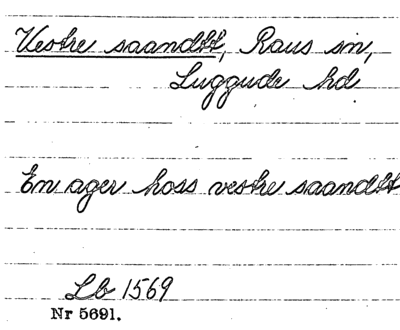 Vestre saandtt, Raus sn,
Luggude hd
En ager hoss vestre saandtt
Lb 1569
Nr 5691.